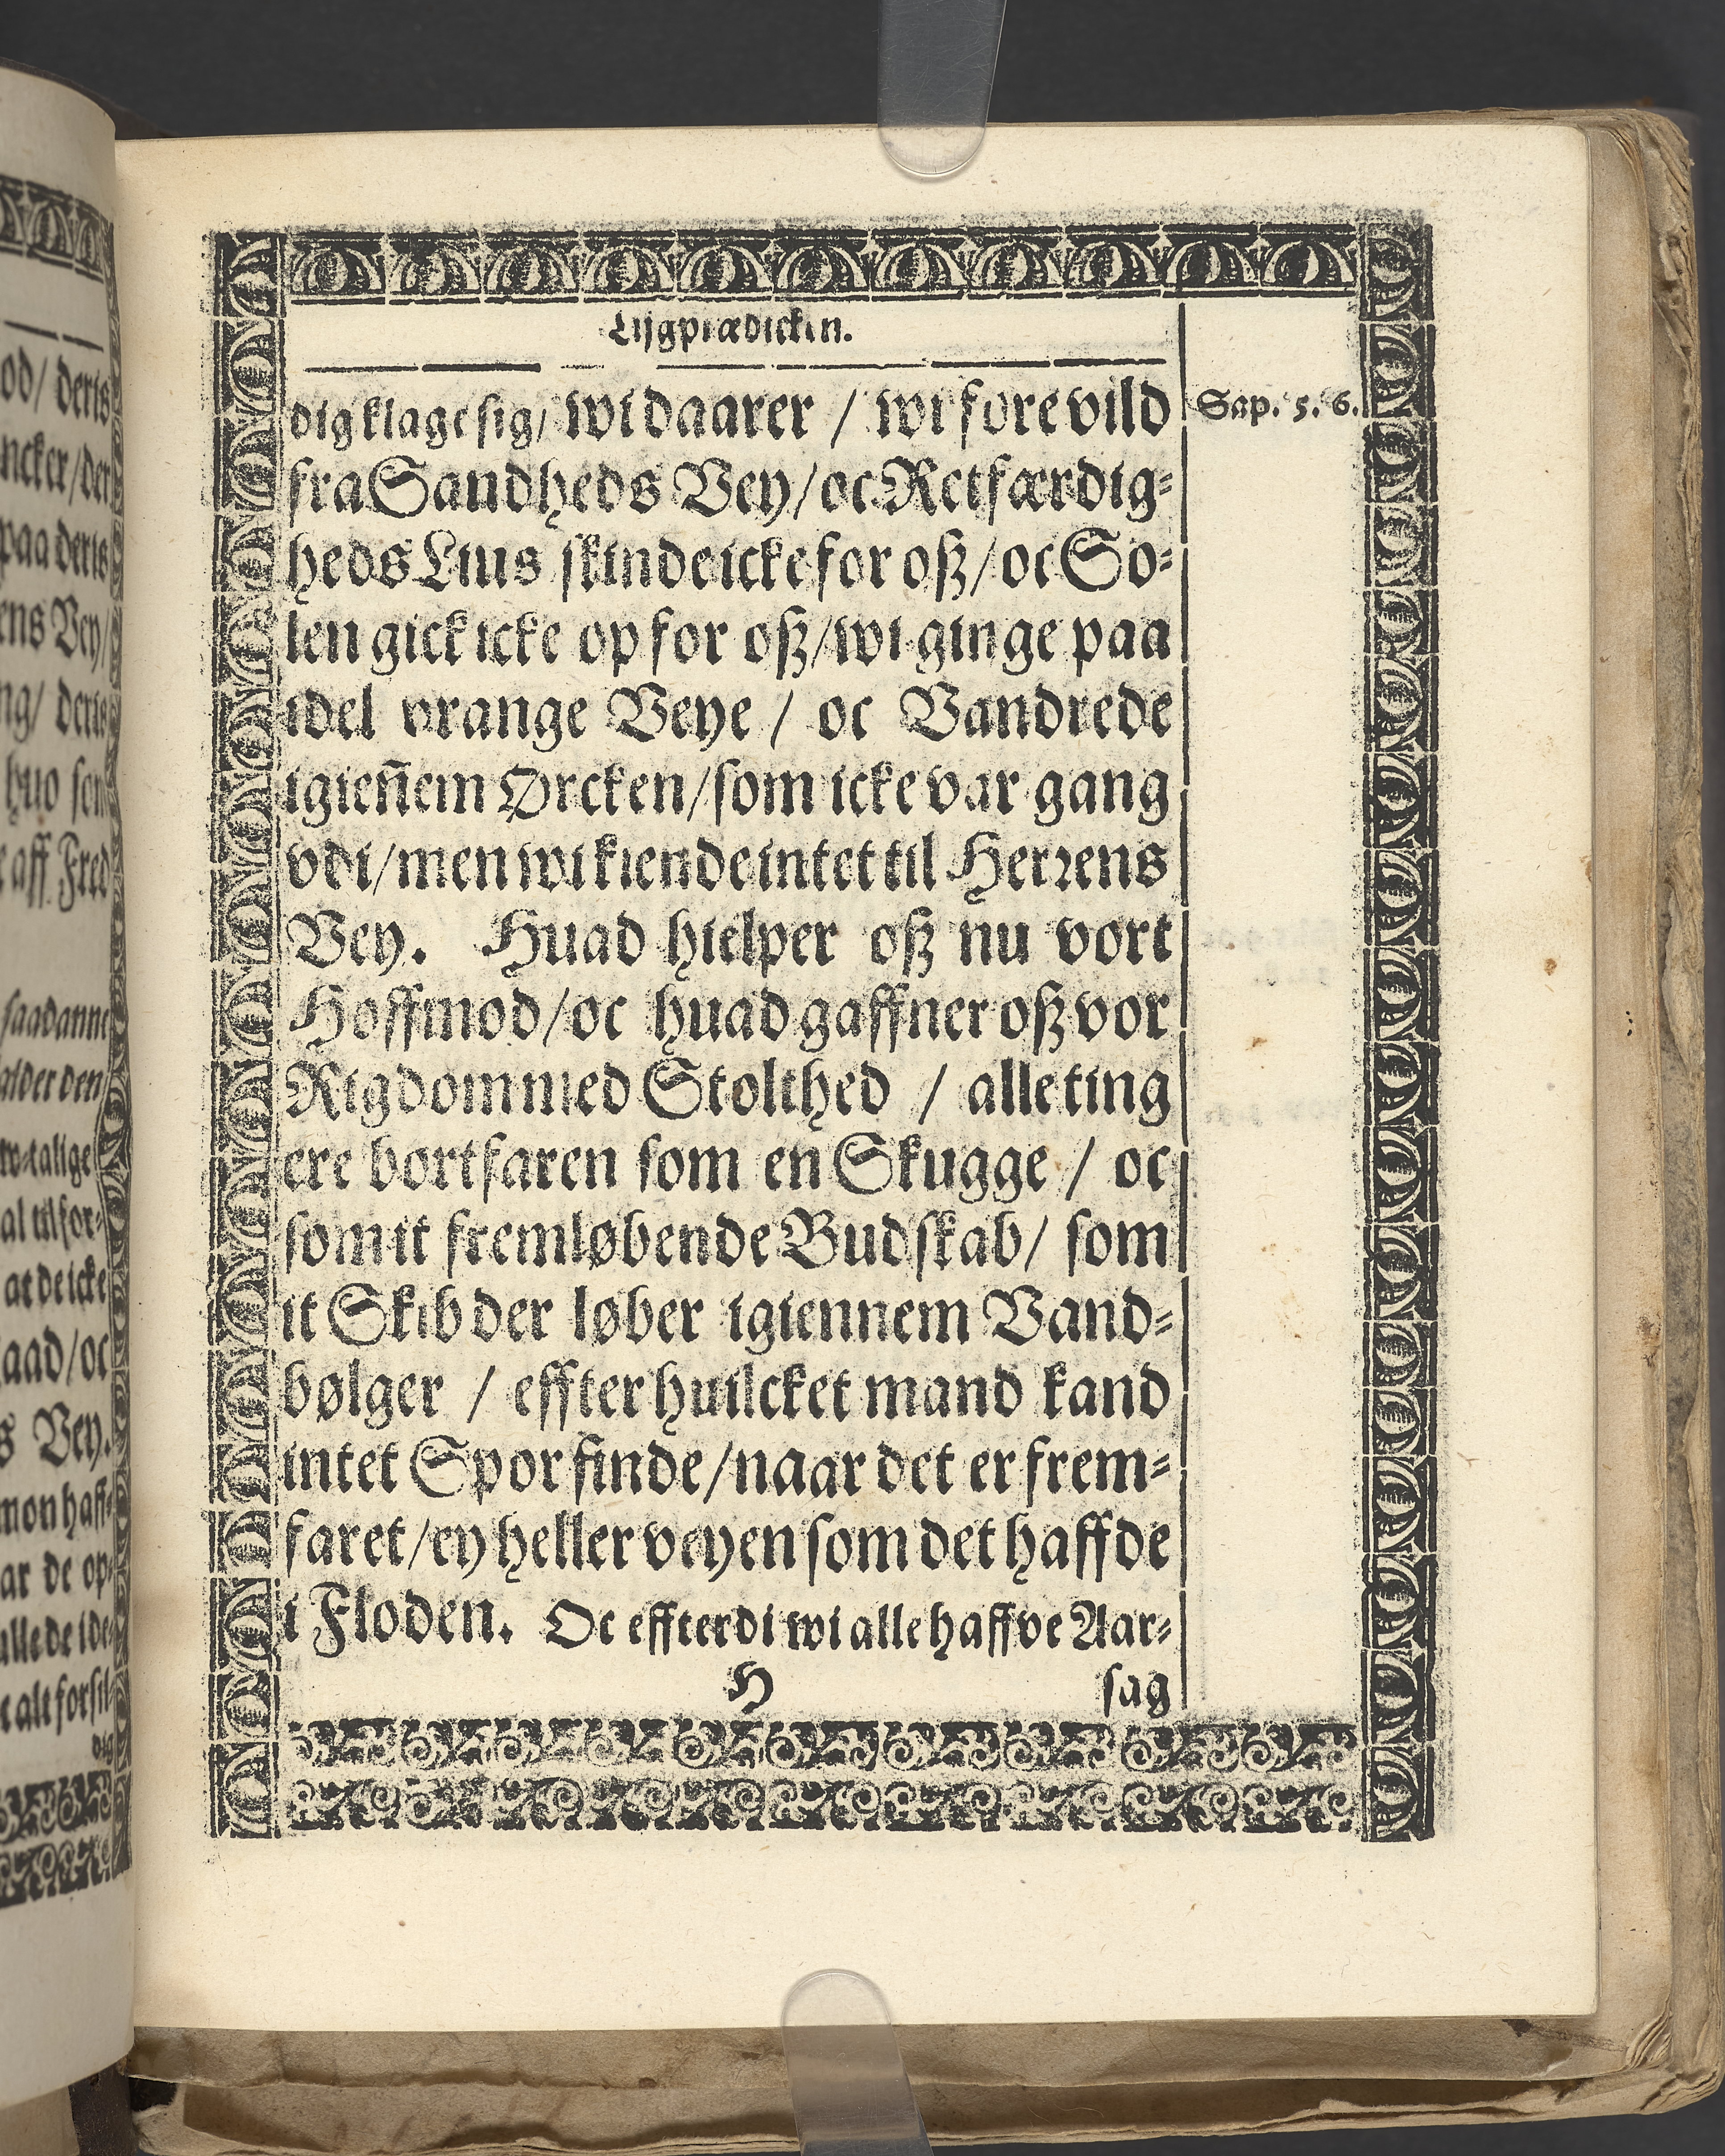 Lijgprædicken.
dig klage sig/ wi daarer / wi fore vild
Sap. 5. 6.
fra Sandheds Vey/ oc Retfærdig-
heds Lius skinde icke for oß/ oc So-
len gick icke op for oß/ wi ginge paa
idel vrange Veye / oc Vandrede
igieñem Ørcken/ som icke var gang
vdi/ men wi kiende intet til Herrens
Vey. Huad hielper oß nu vort
Hoffmod/ oc huad gaffner oß vor
Rigdom med Stolthed / alle ting
ere bortfaren som en Skugge / oc
som it fremløbende Budskab/ som
it Skib der løber igiennem Vand-
bølger / effter huilcket mand kand
intet Spor finde/ naar det er frem-
faret/ ey heller veyen som det haffde
i Floden. Oc effterdi wi alle haffve Aar-
H
sag
od/ deris
ncker/ der
paa deris
ens Vey/
ng/ deris
huo som
aff Fred
saadanne
alder den
talige
al tilfor-
at de icke
aad/ oc
s Vey.
mon haff-
ar de op-
alle de ide-
alt forfil-
dig